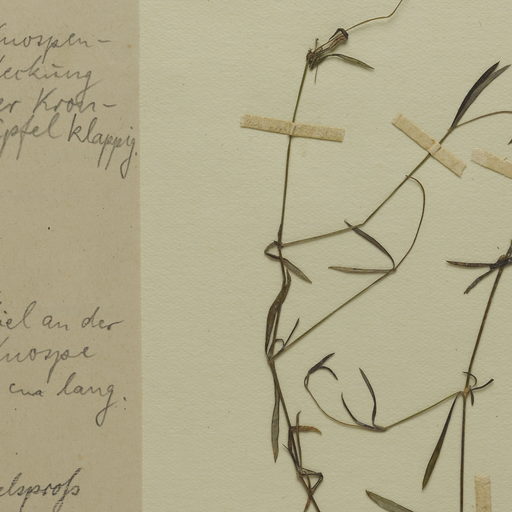 Knospen-
deckung
er Kron-
ipfel klappig.
iel an der
Knospe
cm lang.
elsproß